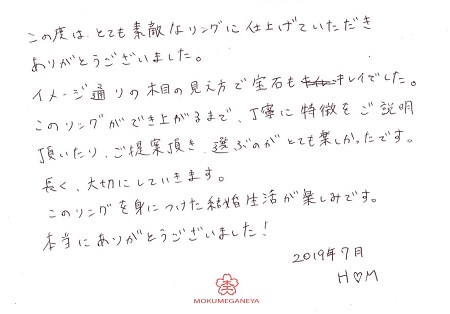 この度は、とても素敵なリングに仕上げていただき
ありがとうございました。
イメージ通りの木目の見え方で宝石もキレイでした。
このリングができ上がるまで、丁寧に特徴をご説明
頂いたり、ご提案頂き、選ぶのがとても楽しかったです。
長く、大切にしていきます。
このリングを身につけた結婚生活が楽しみです。
本当にありがとうございました!
2019年7月
H♡M
MOKUMEGANEYA